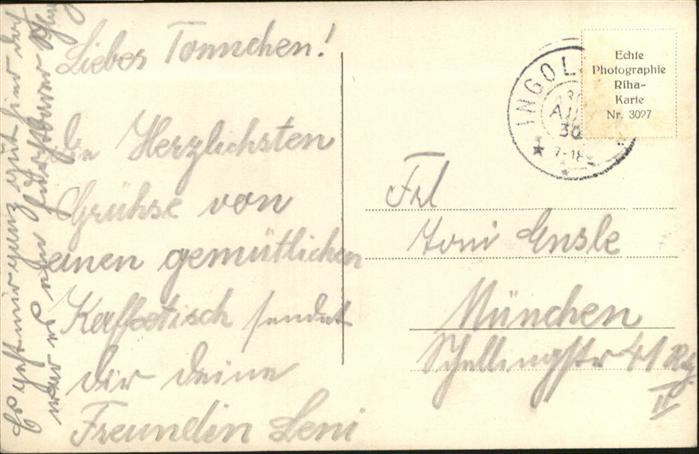 Liebes Tonnchen!
Die Herzlichsten
Grühse von
einen gemütlichen
Kaffetisch sendet
dir deine
Freundin Leni
Es geht mir ganz gut hier
war es ein
INGOL
AU
30
7-18
Echte
Photographie
Riha-
Karte
Nr. 3027
Frl
Toni Ensle
München
Schellingstr 41 Rg
II